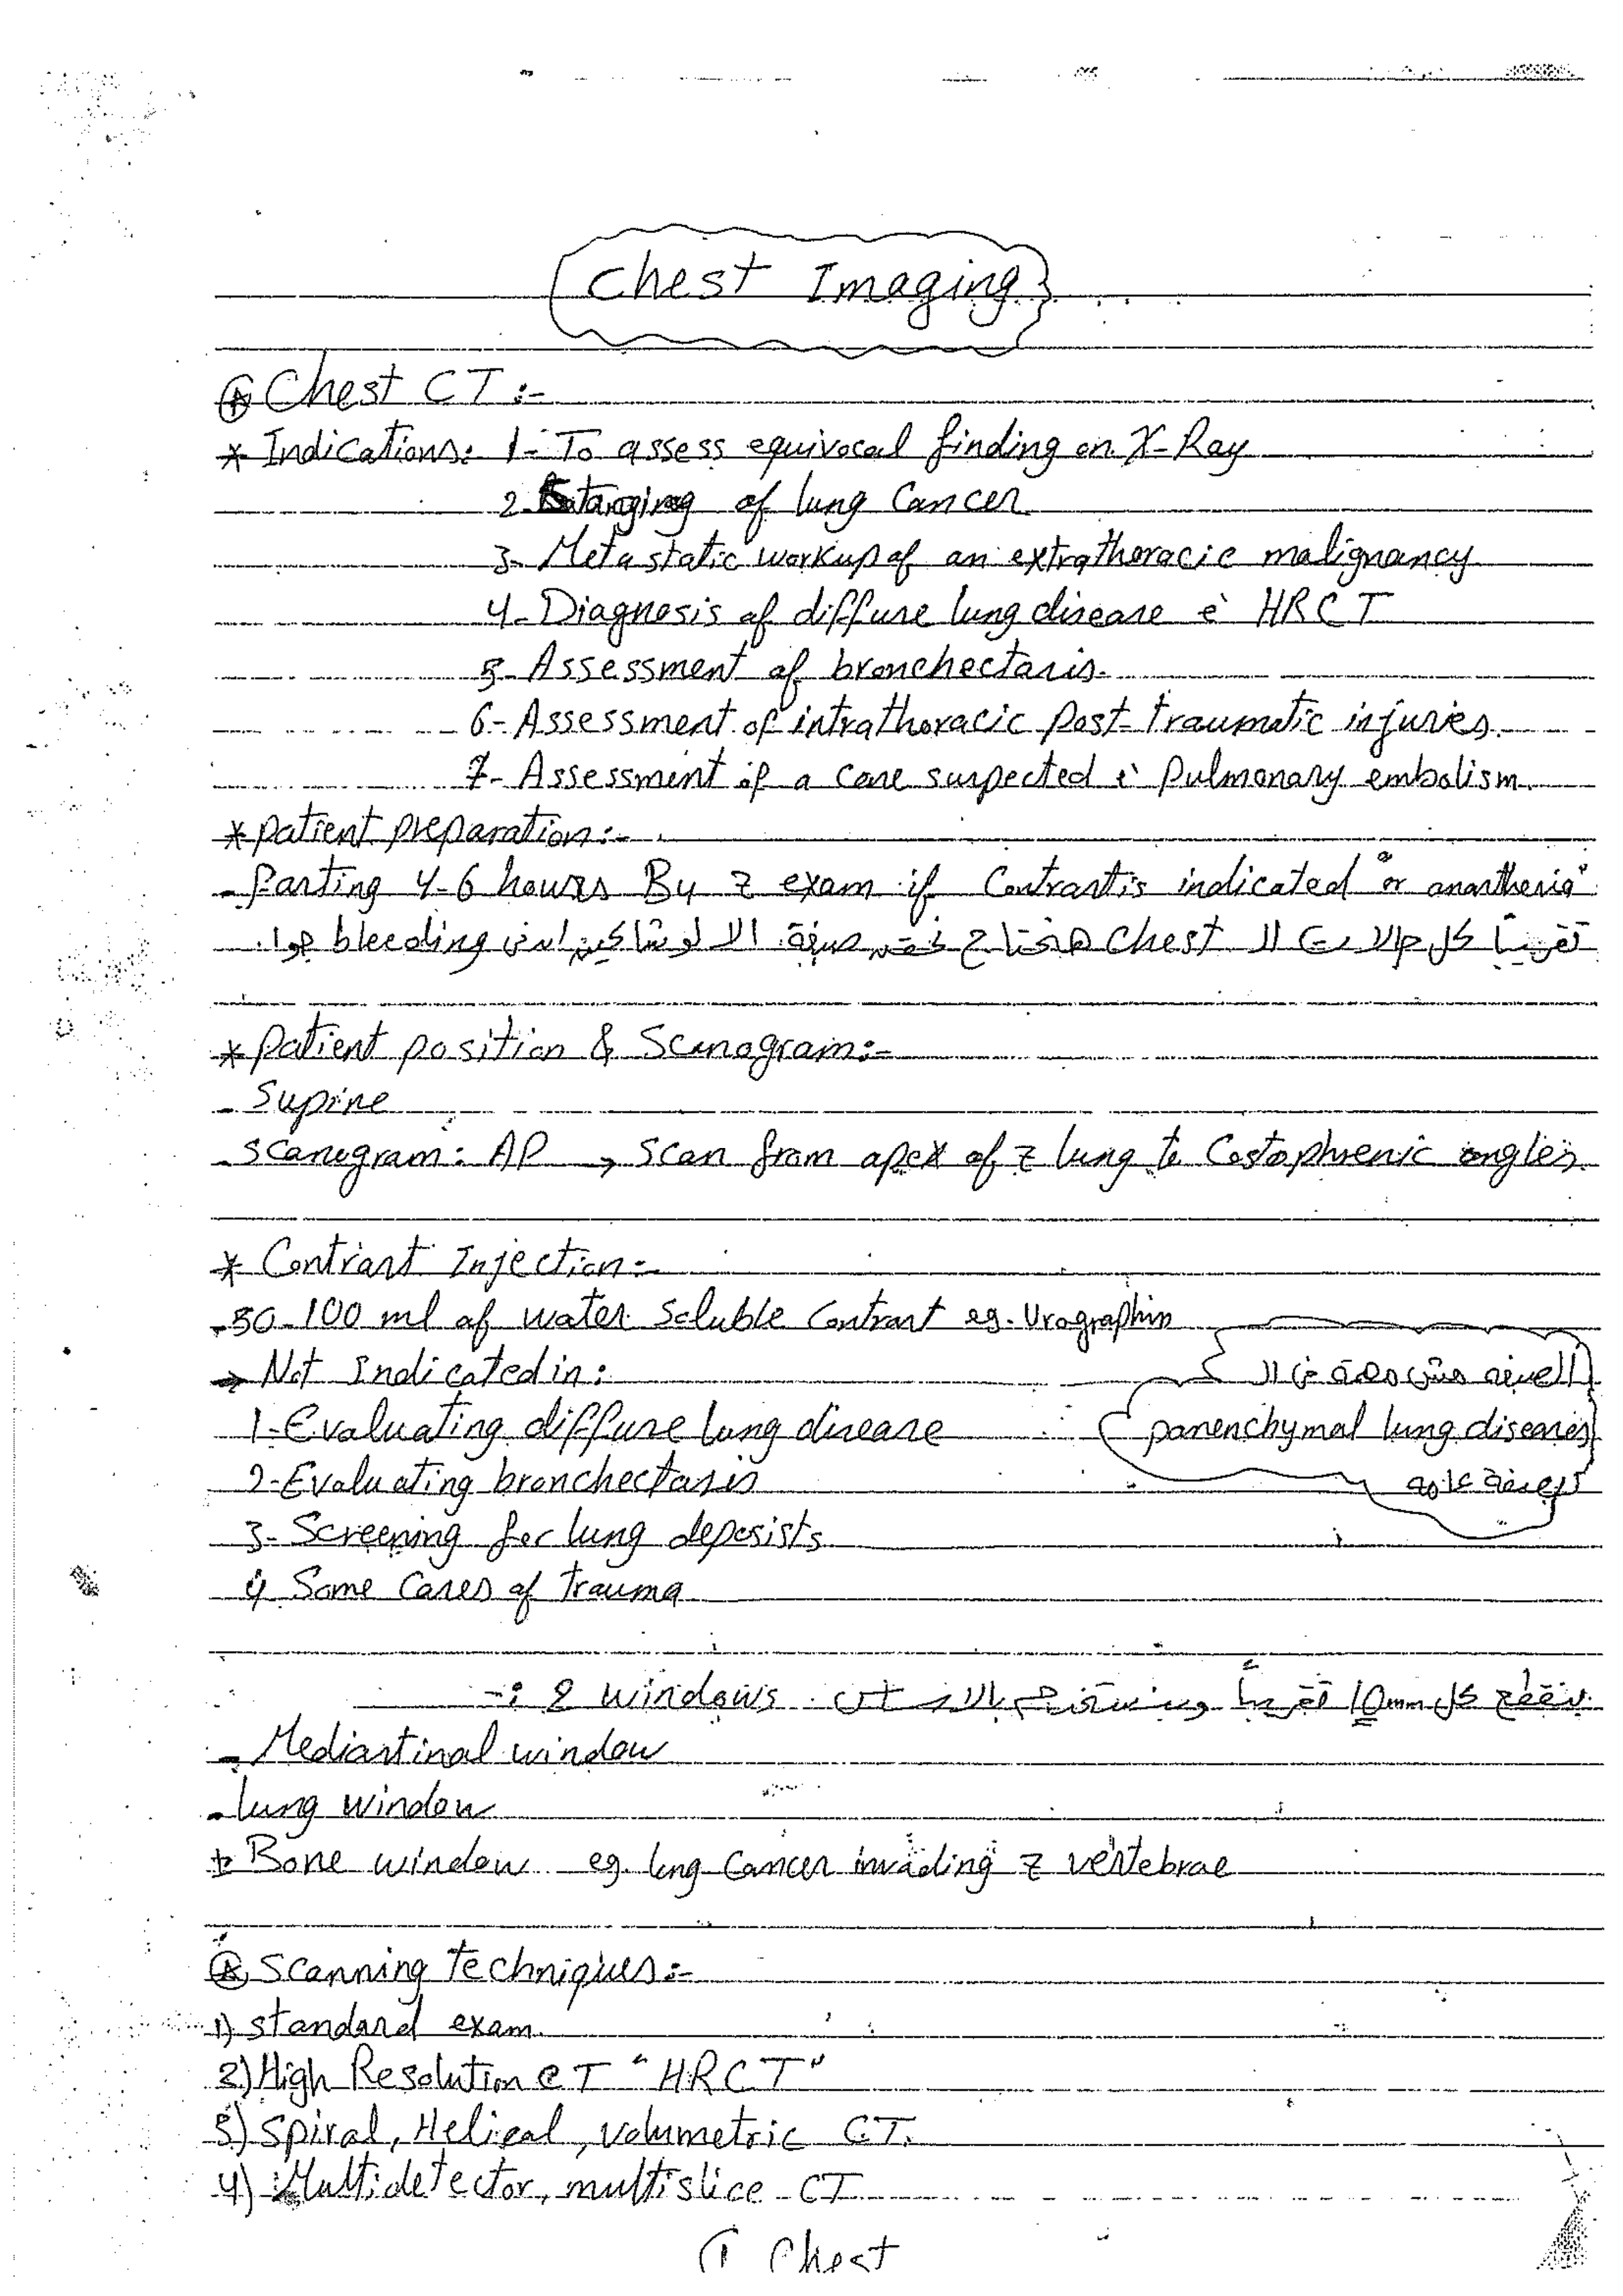 Chest Imaging
Chest CT :-
* Indications: 1- To assess equivocal finding on X-Ray
2- Stanging of lung Cancer
3- Metastatic workup of an extrathoracic malignancy
4- Diagnosis of diffuse lung disease è HRCT
5- Assessment of bronchectasis.
6- Assessment of intrathoracic post-traumatic injuries.
7- Assessment of a case suspected è pulmonary embolism.
* patient preparation:-
- Fasting 4-6 hours By z exam if Contrast is indicated "or anasthesia"
تقريباً كل حالات الـ Chest هنحتاج نحقن صبغة الا لو شاكين ان في bleeding جوا.
* Patient position & Scanogram:-
- Supine
- Scanogram: AP → scan from apex of z lung to Costophrenic angles.
* Contrast Injection:-
- 50-100 ml of water soluble Contrast eg. Urographin
→ Not Indicated in:
الصبغة مش مهمة في الـ
1- Evaluating diffuse lung disease
parenchymal lung diseases
2- Evaluating bronchectasis
3- Screening for lung deposists
4 Some Cases of trauma
بنقطع كل 10mm تقريباً وبنستخدم بالاساس 2 windows :-
- Mediastinal window
- lung window
± Bone window eg. lung Cancer invading z vertebrae
Scanning Techniques:-
1) standard exam.
2) High Resolution CT "HRCT"
3) Spiral, Helical, volumetric CT.
4) Multidetector, multislice CT
1 Chest